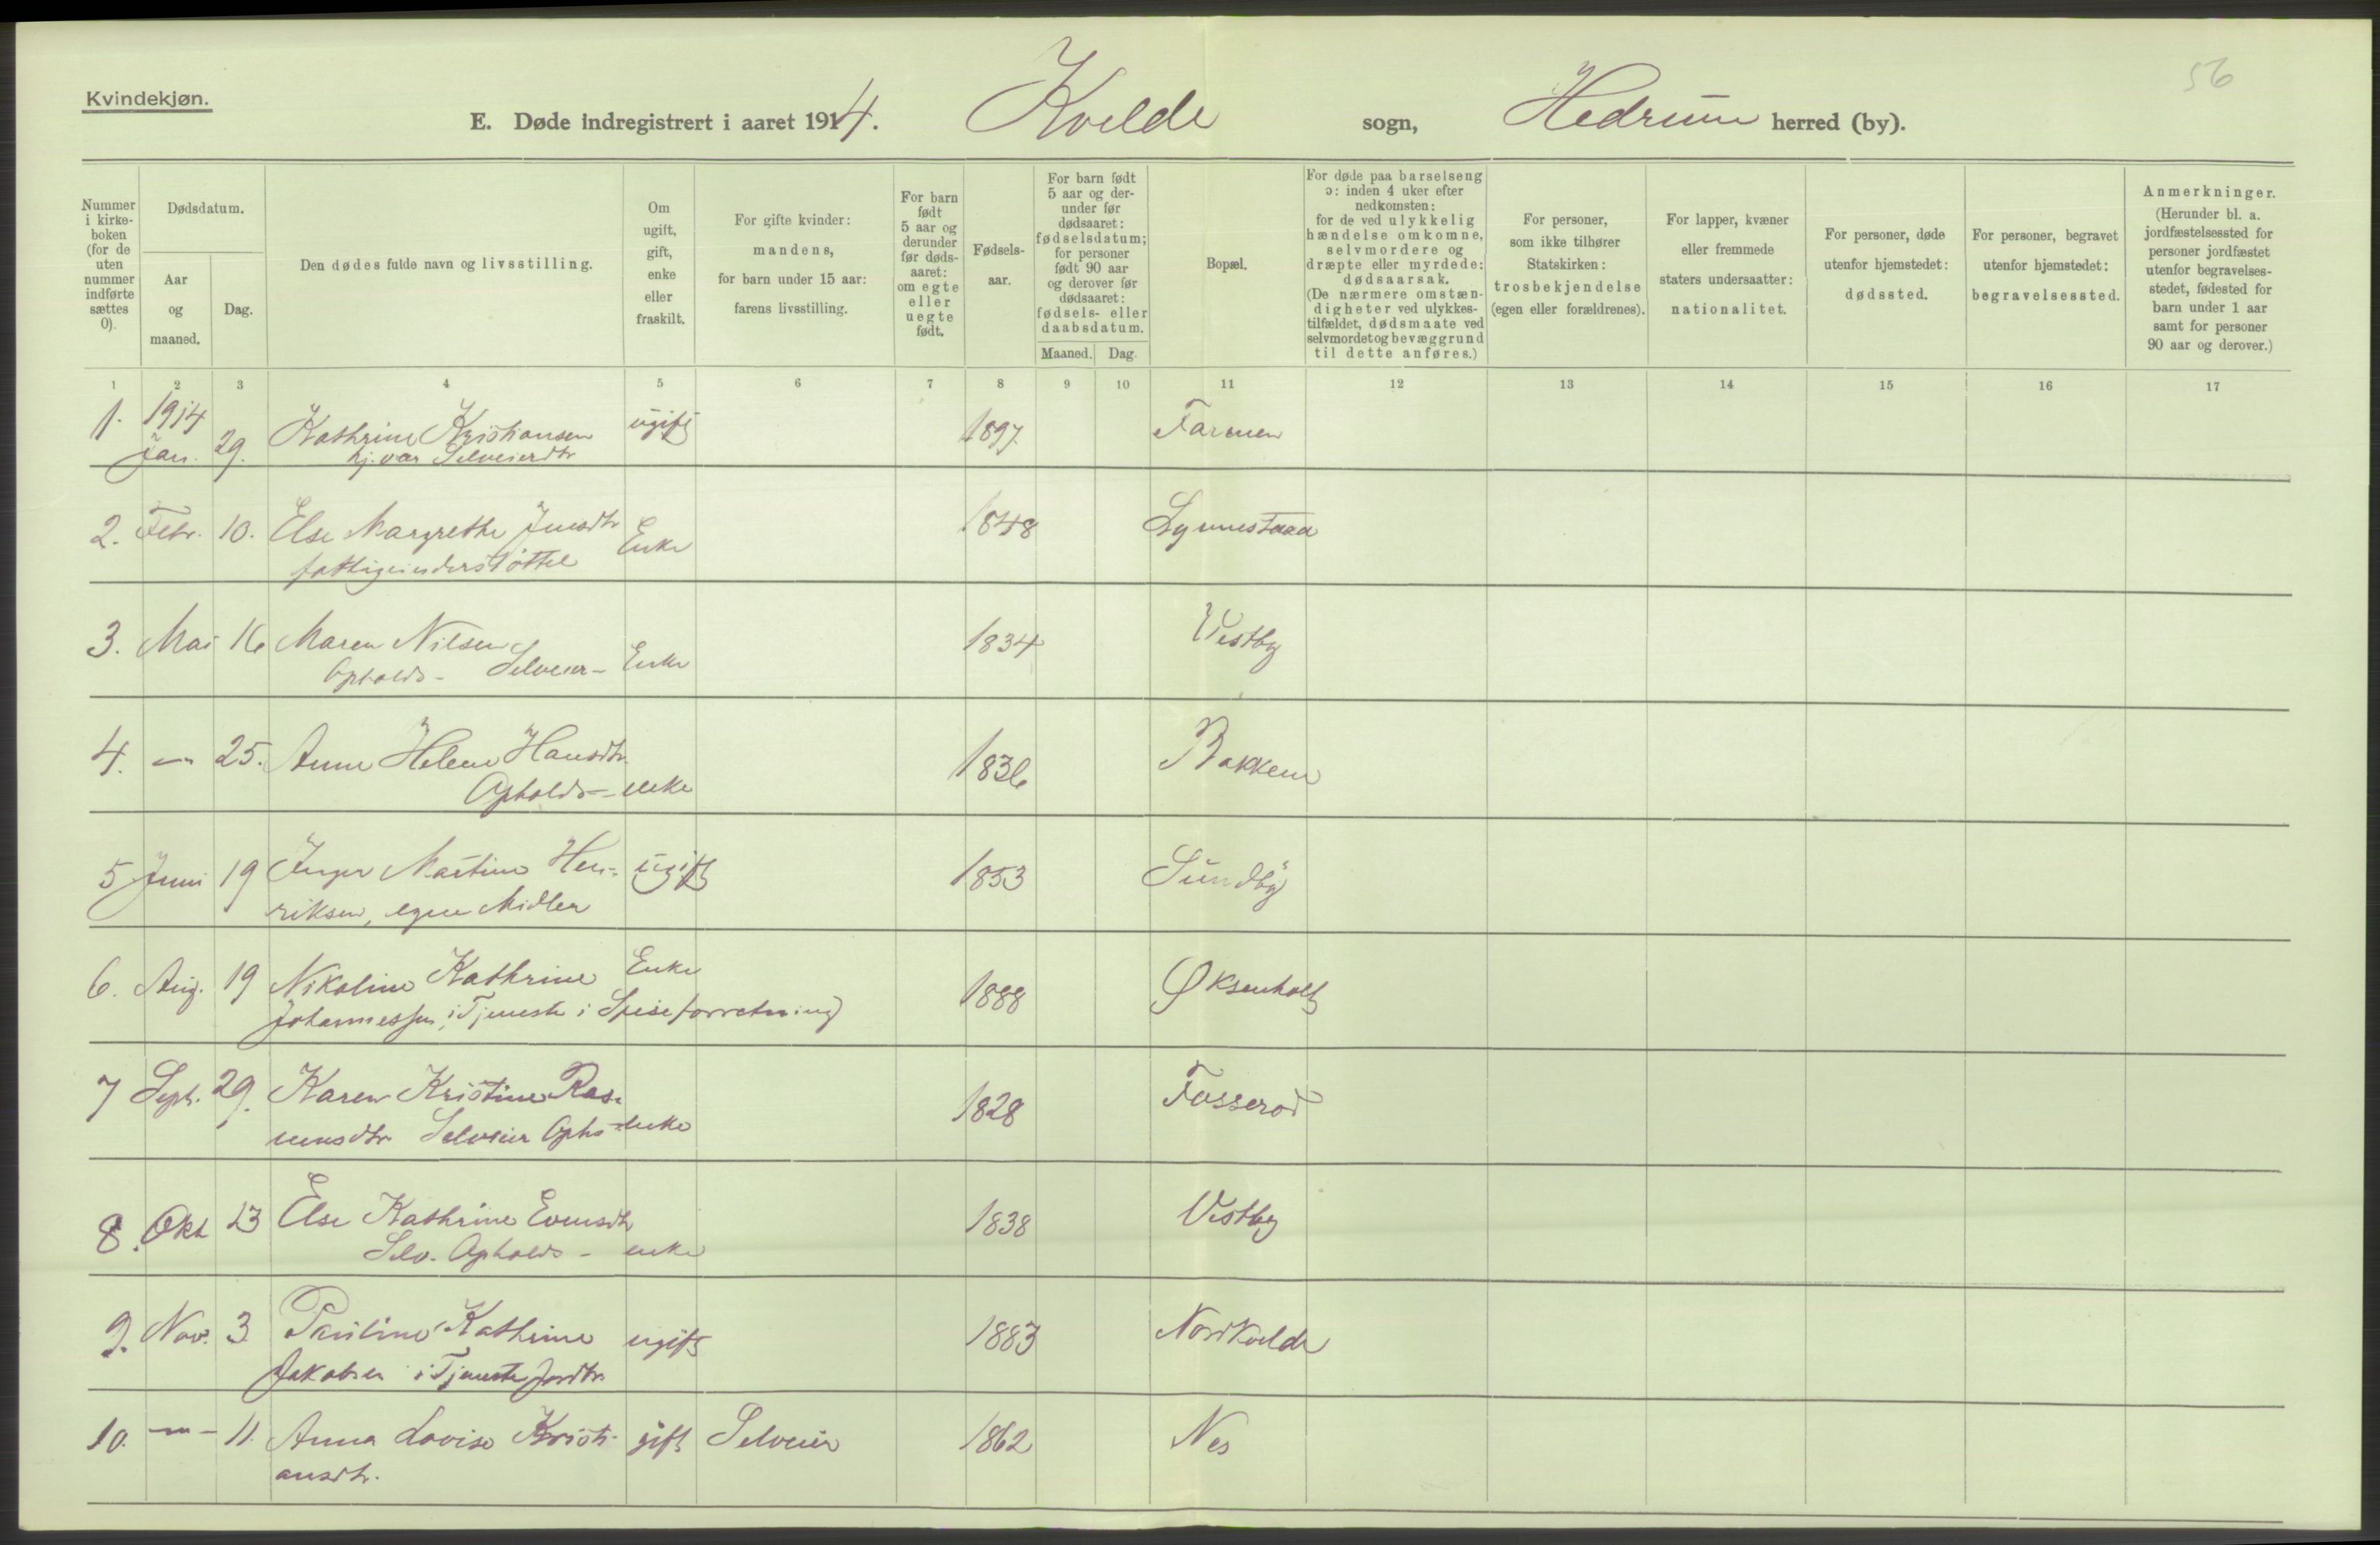 56
Kvindekjøn.
E. Døde indregistrert i aaret 1914. Kvelde sogn, Hedrum herred (by).
Nummer i kirke-boken (for de uten nummer indførte sættes 0).
Dødsdatum.
Aar og maaned.
Dag.
Den dødes fulde navn og livsstilling.
Om ugift, gift, enke eller fraskilt.
For gifte kvinder: mandens, for barn under 15 aar: farens livsstilling.
For barn født 5 aar og derunder før døds-aaret: om egte eller uegte født.
Fødsels-aar.
For barn født 5 aar og der-under før dødsaaret: fødselsdatum; for personer født 90 aar og derover før dødsaaret: fødsels- eller daabsdatum.
Maaned. Dag.
Bopæl.
For døde paa barselseng ɔ: inden 4 uker efter nedkomsten: for de ved ulykkelig hændelse omkomne, selvmordere og dræpte eller myrdede: dødsaarsak. (De nærmere omstæn-digheter ved ulykkes-tilfældet, dødsmaate ved selvmordet og bevæggrund til dette anføres.)
For personer, som ikke tilhører Statskirken: trosbekjendelse (egen eller forældrenes).
For lapper, kvæner eller fremmede staters undersaatter: nationalitet.
For personer, døde utenfor hjemstedet: dødssted.
For personer, begravet utenfor hjemstedet: begravelsessted.
Anmerkninger. (Herunder bl. a. jordfæstelsessted for personer jordfæstet utenfor begravelses-stedet, fødested for barn under 1 aar samt for personer 90 aar og derover.)
1 2 3 4 5 6 7 8 9 10 11 12 13 14 15 16 17
1. 1914 Jan. 29. Kathrine Kristiansen ugift 1897. Farmen
hj. vær. Selveierdtr
2. Febr. 10. Else Margrethe Jensdtr Enke 1848
fattigunderstøttet
3. Mai 16 Maren Nilsen 1834 Vestby
Opholds- Selveier- Enke
4. -"- 25. Anne Helene Hansdtr. 1836 Bakken
Opholds- enke
5 Juni 19 Inger Martine Hen- ugift 1853 Sundby
riksen, egne Midler
6. Aug. 19 Nikoline Kathrine Enke 1888 Øksenholt
Johannessen, i Tjeneste i Spiseforretning
7 Sept. 29. Karen Kristine Ras- 1828 Fosserød
musdtr Selveier Ophs- enke
8. Okt 23 Else Kathrine Evensdtr 1838 Vestby
Selv. Opholds- enke
9. Nov. 3 Pauline Kathrine ugift 1883 Nordkvelde
Jakobsen i Tjeneste Jordbr.
10. -"- 11. Anna Lovise Kristi- gift Selveier 1862 Nes
ansdtr.